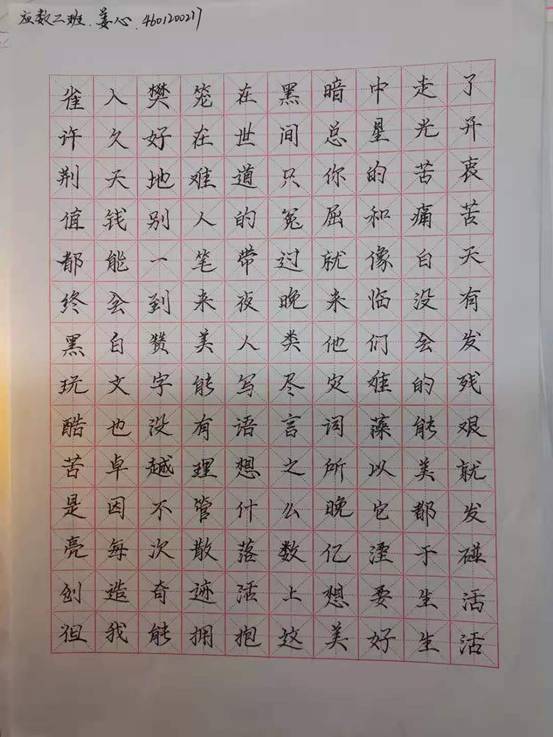 应数二班.姜心.4601200217
雀入樊笼在黑暗中走了
许久好在世间总星光开
荆天地难道只你的苦衷
值钱别人的冤屈和痛苦
都能一笔带过就像白天
终会到来夜晚来临没有
黑白赞美人类他们会发
玩文字能写尽灾难的残
酷也没有语言词藻能艰
苦卓越理想之所以美就
是因不管什么晚它都发
亮每次散落数亿湮于碰
创造奇迹活上想要生活
徂我能拥抱这美好生活